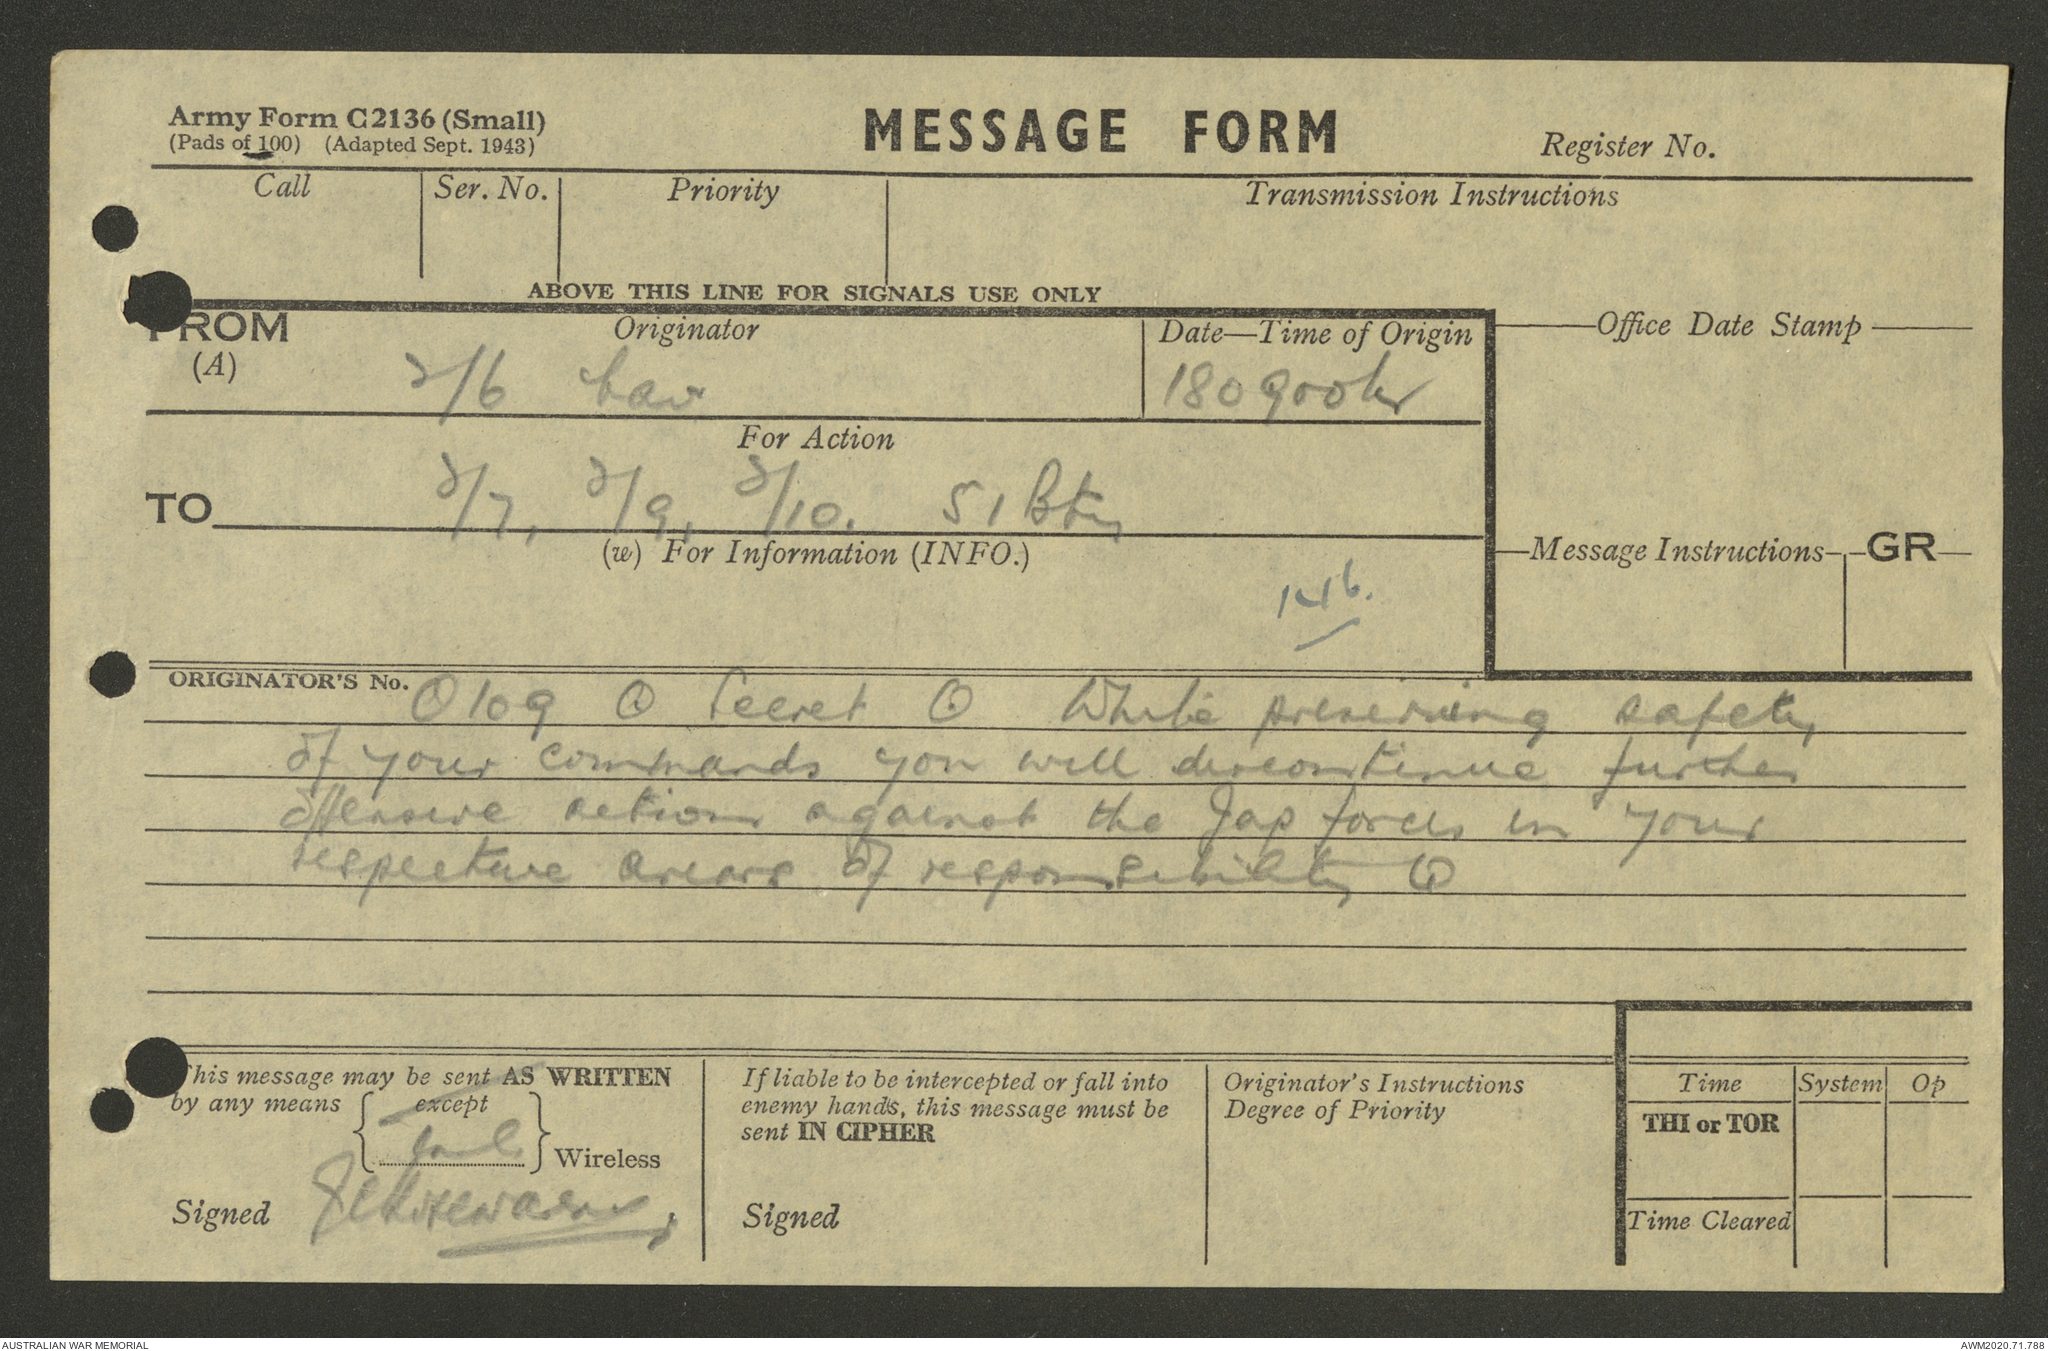 Army Form C2136 (Small)
(Pads of 100) (Adapted Sept. 1943)
MESSAGE FORM
Register No.
Call
Ser. No.
Priority
Transmission Instructions
ABOVE THIS LINE FOR SIGNALS USE ONLY
FROM
(A)
Originator
2/6 Cav
Date—Time of Origin
180900hr
Office Date Stamp
For Action
TO
2/7, 2/9, 2/10. 51 Bty
(w) For Information (INFO.)
146.
Message Instructions
GR
ORIGINATOR'S No.
O109 Secret While preserving safety
of your commands you will discontinue further
offensive action against the Jap forces in your
respective areas of responsibility
This message may be sent AS WRITTEN
by any means
except
Wireless
Signed
If liable to be intercepted or fall into
enemy hands, this message must be
sent IN CIPHER
Signed
Originator's Instructions
Degree of Priority
Time
System
Op
THI or TOR
Time Cleared
AUSTRALIAN WAR MEMORIAL
AWM2020.71.788